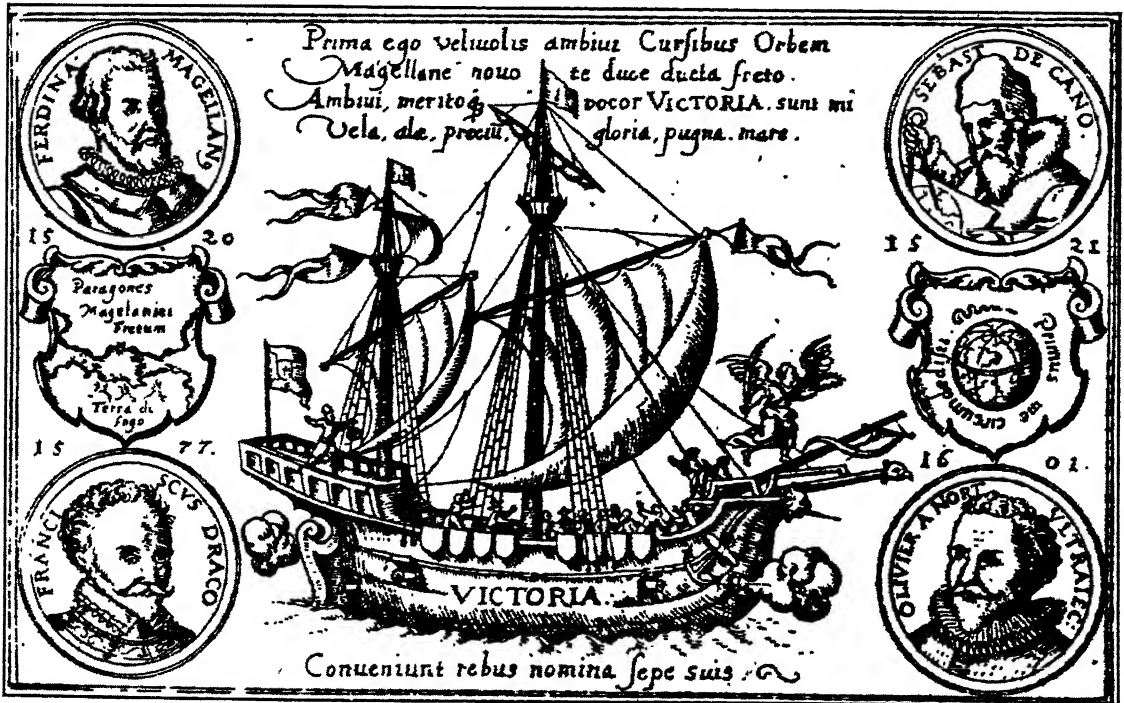 Prima ego veliuolis ambiui Cursibus Orbem
Magellane nouo te duce ducta freto.
Ambiui, meritoqꝫ vocor VICTORIA. sunt mi
Vela, alæ, preciũ, gloria, pugna. mare.
FERDINA. MAGELLANꝰ
SEBAST DE CANO.
15 20
15 21
Paragones
Magelanici
Fretum
Terra di
fogo
Primus me circumdedisti.
15 77.
16 01.
FRANCISCVS DRACO
OLIVIER A NORT VLTRAIECT:
VICTORIA
Conueniunt rebus nomina sepe suis